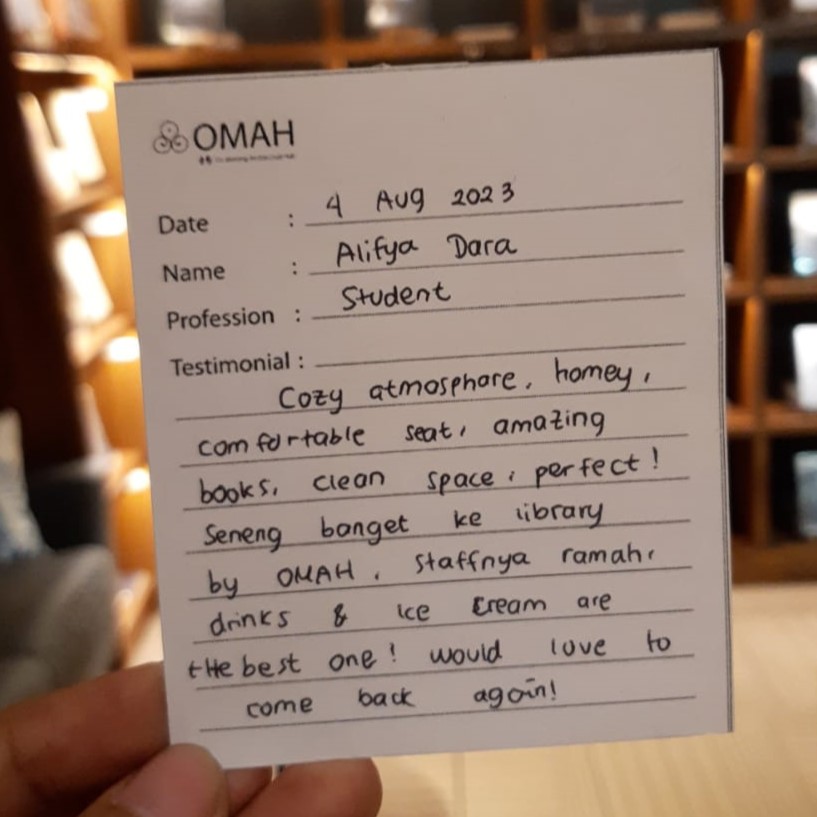 OMAH
Date : 4 Aug 2023
Name : Alifya Dara
Profession : Student
Testimonial :
Cozy atmosphore, homey,
comfortable seat, amazing
books, clean space, perfect!
Seneng banget ke library
by OMAH. Staffnya ramah,
drinks & ice cream are
the best one! would love to
come back again!